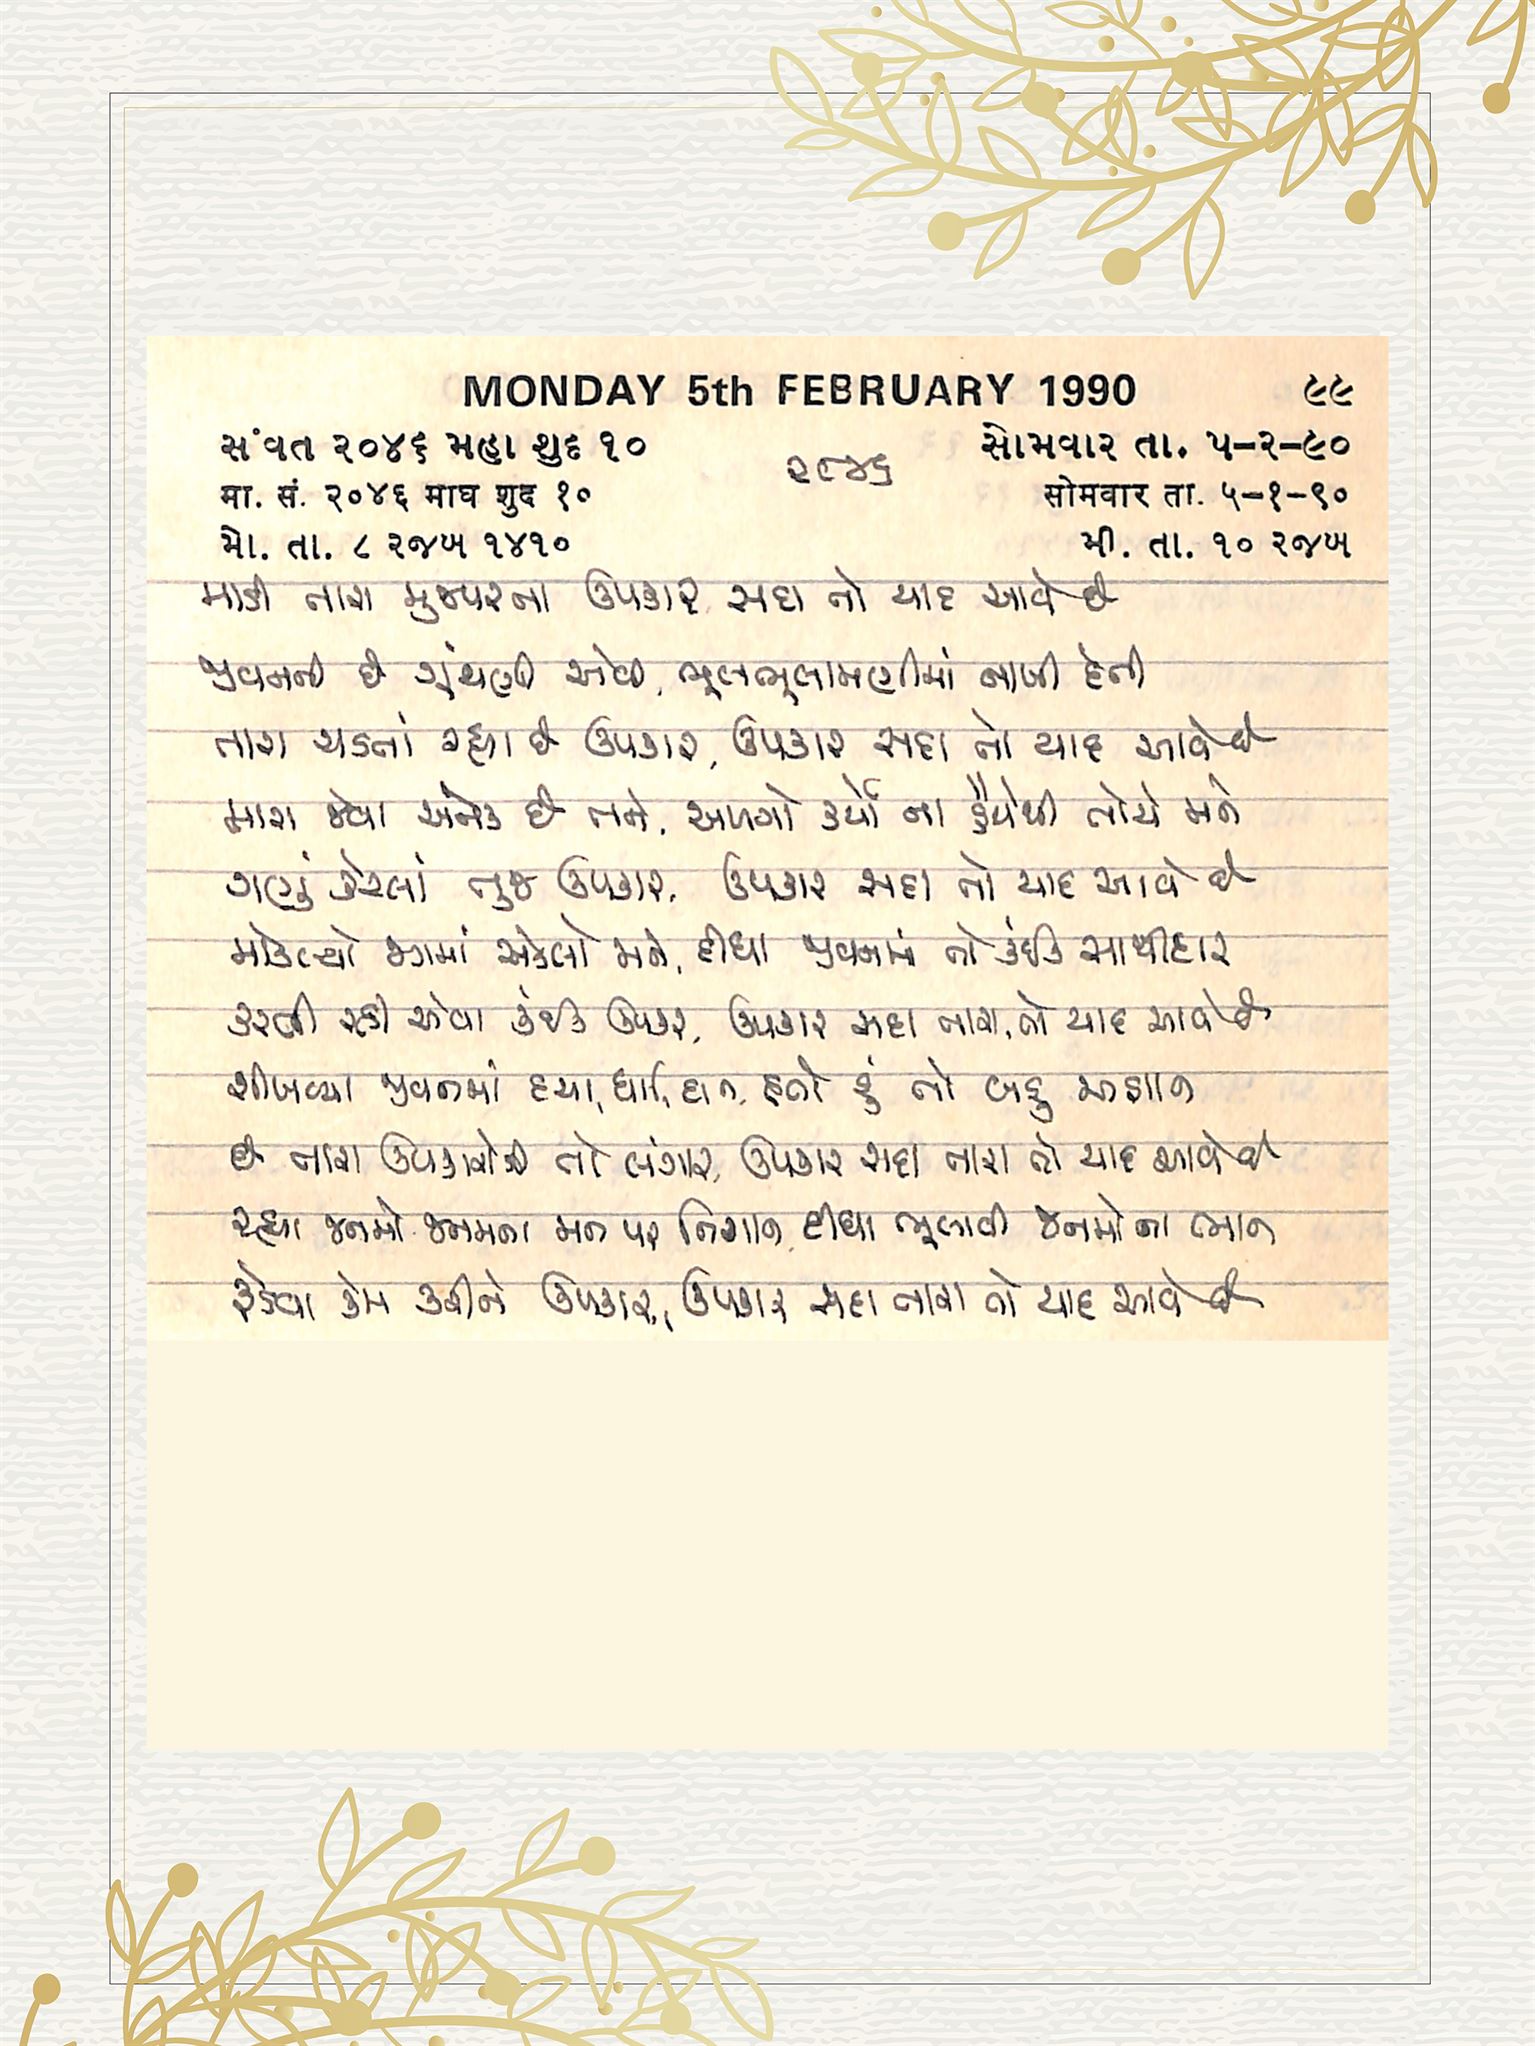 MONDAY 5th FEBRUARY 1990 ૯૯
સંવત ૨૦૪૬ મહા શુદ ૧૦ સોમવાર તા. ૫-૨-૯૦
૨૯૪૬
मा. सं. २०४६ माघ शुद १० सोमवार ता. ५-१-९०
મો. તા. ૮ રજબ ૧૪૧૦ મી. તા. ૧૦ રજબ
માડી તારા મુજપરના ઉપકાર, સદા તો યાદ આવે છે
જીવનની છે ગૂંથણી એવી, ભૂલભૂલામણીમાં નાખી દેતી
તારા ચડતાં રહ્યા છે ઉપકાર, ઉપકાર સદા તો યાદ આવે છે
મારા જેવા અનેક છે તને, અળગો કર્યો ના હૈયેથી તોયે મને
ગણું કેટલાં તુજ ઉપકાર, ઉપકાર સદા તો યાદ આવે છે
મોકલ્યો જગમાં એકલો મને, દીધા જીવનમાં તો કંઈક સાથીદાર
કરતી રહી એવા કંઈક ઉપકાર, ઉપકાર સદા તારા, તો યાદ આવે છે
શીખવ્યા જીવનમાં દયા, ધર્મ, દાન, હતો હું તો બહુ અજ્ઞાન
છે તારા ઉપકારોની તો લંગાર, ઉપકાર સદા તારા તો યાદ આવે છે
રહ્યા જનમો જનમના મન પર નિશાન, દીધા ભૂલાવી જનમોના ભાન
ફેડવા કેમ કરીને ઉપકાર, ઉપકાર સદા તારા તો યાદ આવે છે